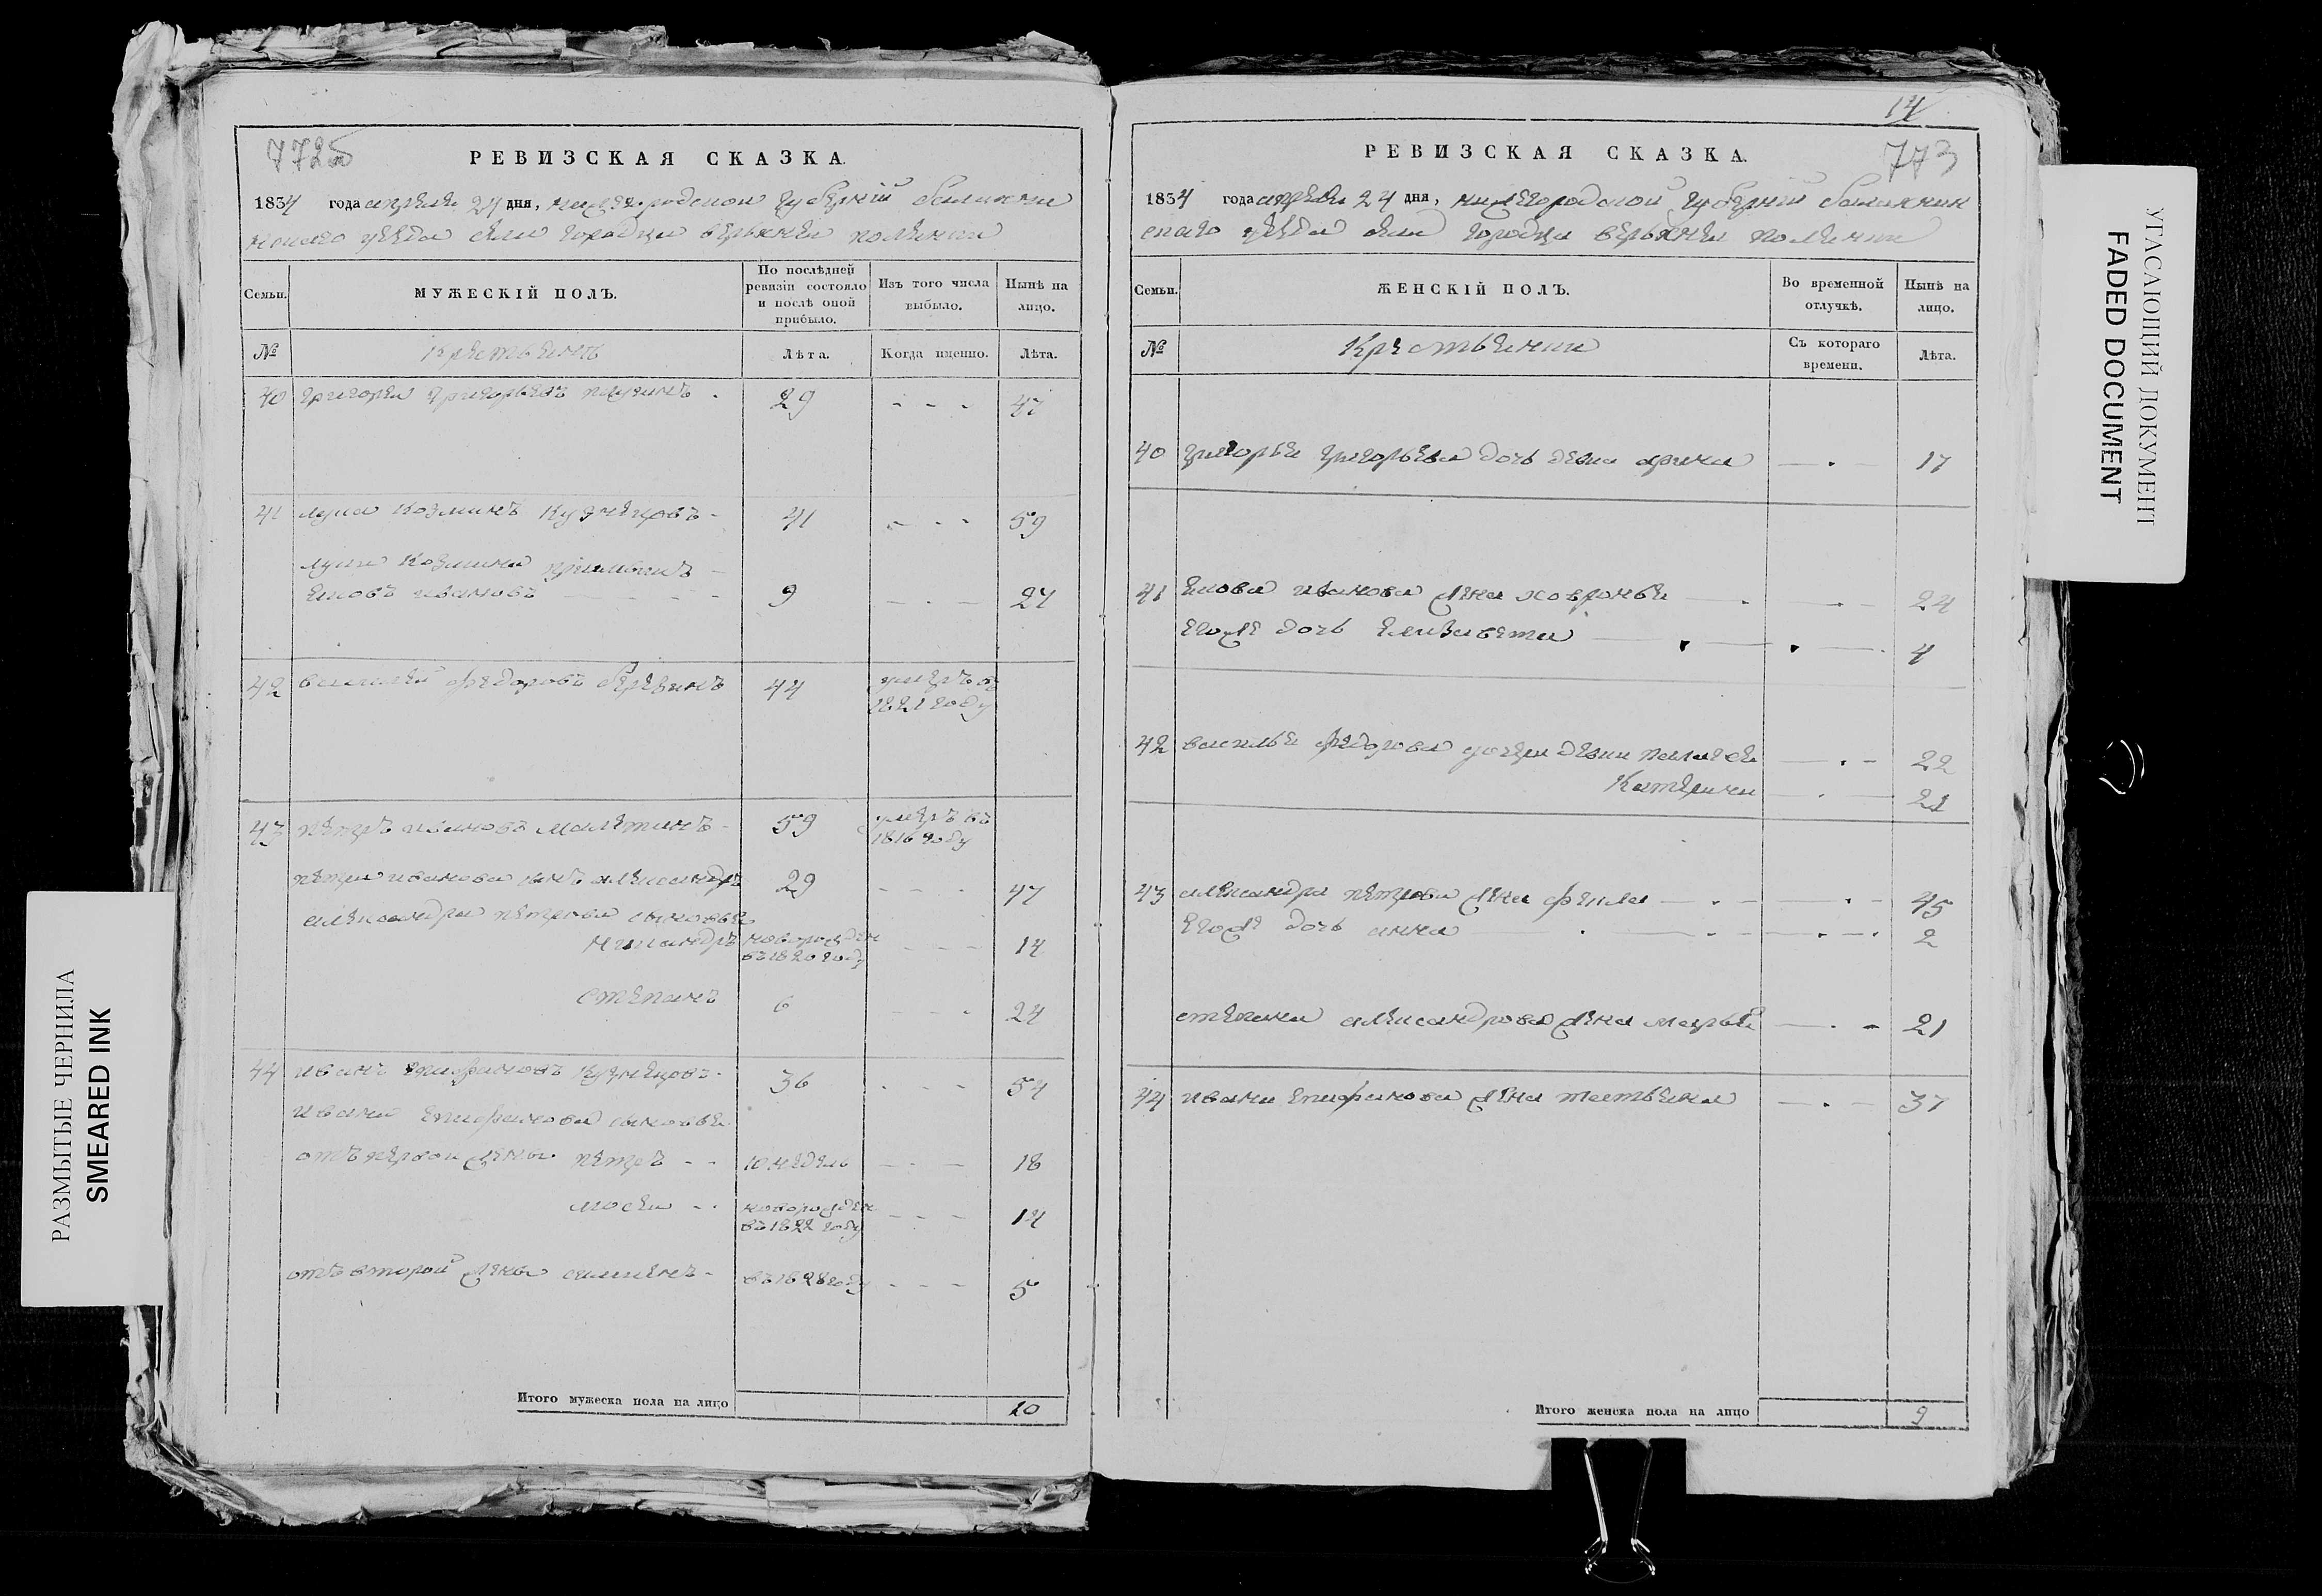 РЕВИЗСКАЯ СКАЗКА.
1834 года апреля 24 дня, нижегородской губернiй балахни
нскаго уезда села городца верхнеи полянки
Семьи.
МУЖЕСКІЙ ПОЛЪ.
По послѣдней ревизіи состояло и послѣ оной прибыло.
Изъ того числа выбыло.
Нынѣ на лицо.
№
крестьянъ
Лѣта.
Когда именно.
Лѣта.
40 григореи григорьевъ 29 47
41 лука козминъ кузнецовъ 41 59
луки козмина приимышъ
яковъ ивановъ 9 27
42 василей федоровъ 44 умеръ въ
1821 году
43 петръ ивановъ малетинъ 59 умеръ въ
1816 году
петра иванова сынъ александръ 29 47
александра петрова сыновья
никандръ новорожден 14
въ 1820 году
степанъ 6 24
44 иванъ епифановъ кузнецовъ 36 54
ивана епифанова сыновья
отъ первои жены петръ 10 недель 18
мосеи новорожден 14
въ 1822 году
отъ второй жены въ 1828 году 5
Итого мужеска пола на лицо 10
14
773
РЕВИЗСКАЯ СКАЗКА.
1834 года апреля 24 дня, нижегородской губернiй балахнин
скаго уезда села городца верхнеи полянки
Семьи.
ЖЕНСКІЙ ПОЛЪ.
Во временной отлучкѣ.
Нынѣ на лицо.
№
крестьянки
Съ котораго времени.
Лѣта.
40 григорья григорьева дочь девка арина 17
41 якова иванова жена ховронья 24
егоже дочь елизавета 4
42 василья федорова дочери девки пелагея 22
катерина 21
43 александра петрова жена фекла 45
егоже дочь анна 2
степана александрова жена марья 21
44 ивана епифанова жена татьяна 37
Итого женска пола на лицо 9
РАЗМЫТЫЕ ЧЕРНИЛА
SMEARED INK
УГАСАЮЩИЙ ДОКУМЕНТ
FADED DOCUMENT